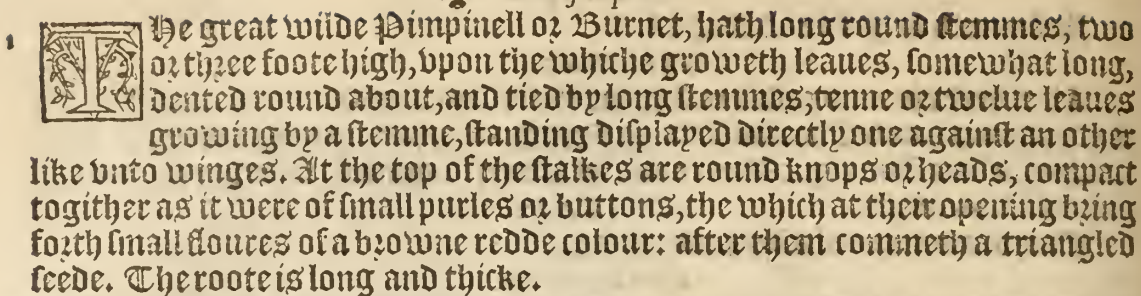 1 The great wilde Pimpinell or Burnet, hath long round stemmes, two
or three foote high, vpon the whiche groweth leaues, somewhat long,
dented round about, and tied by long stemmes, tenne or twelue leaues
growing by a stemme, standing displayed directly one against an other
like vnto winges. At the top of the stalkes are round knops or heads, compact
togither as it were of small purles or buttons, the which at their opening bring
forth small floures of a browne redde colour: after them commeth a triangled
seede. The roote is long and thicke.